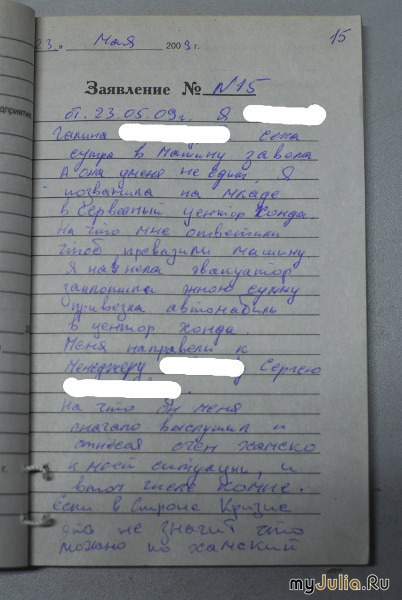 15
23 » Мая 2009 г.
Заявление № N15
от. 23.05.09 г. Я
Галина села
сутра в Машину завела
А она уменя не едит, Я
позванила на мкаде
в Сервесный центор Хонда.
На что мне ответили
чтоб превазили машину
Я наенела эвакуатор
заплотила энною сумму
привезла автомобиль
в центор Хонда.
Меня направели к
Менеджеру Сергею
На что он меня
сначало выслушил и
атнёсся очен хамско
к моей ситуации, и
втом числе комне.
если в Строне Кризис
это не значит что
можно по хамский
myJulia.Ru